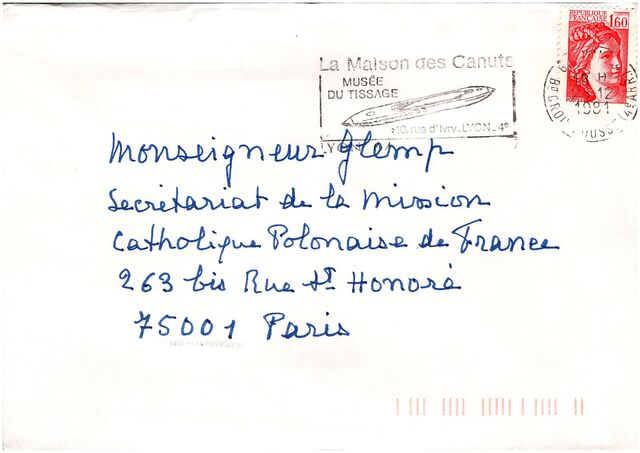 RÉPUBLIQUE
FRANÇAISE
1.60
La Maison des Canuts
MUSÉE
DU TISSAGE
10, rue d'Ivry_LYON_4e
LYON
19 H
12
1981
Monseigneur Glemp
Secrétariat de la Mission
Catholique Polonaise de France
263 bis Rue St Honoré
75001 Paris